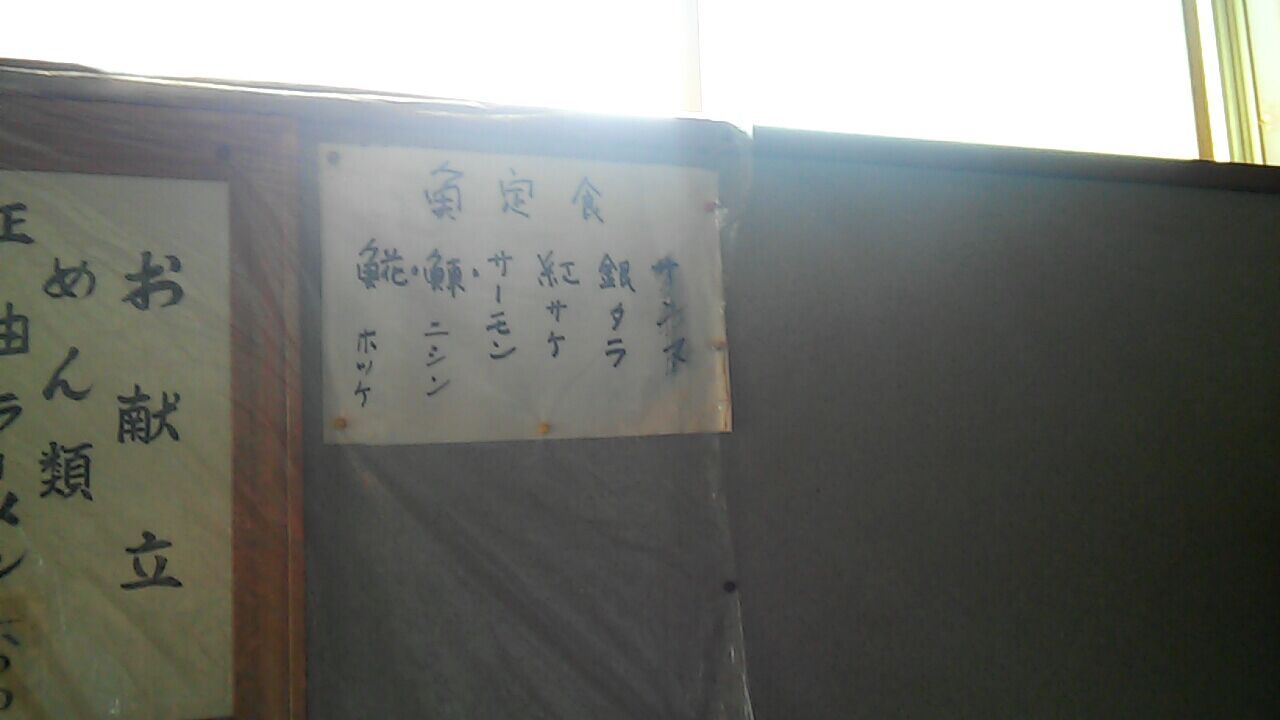 魚定食
銀タラ
紅サケ
サーモン
鰊・ニシン
𩸽・ホッケ
お献立
めん類
正油ラーメン